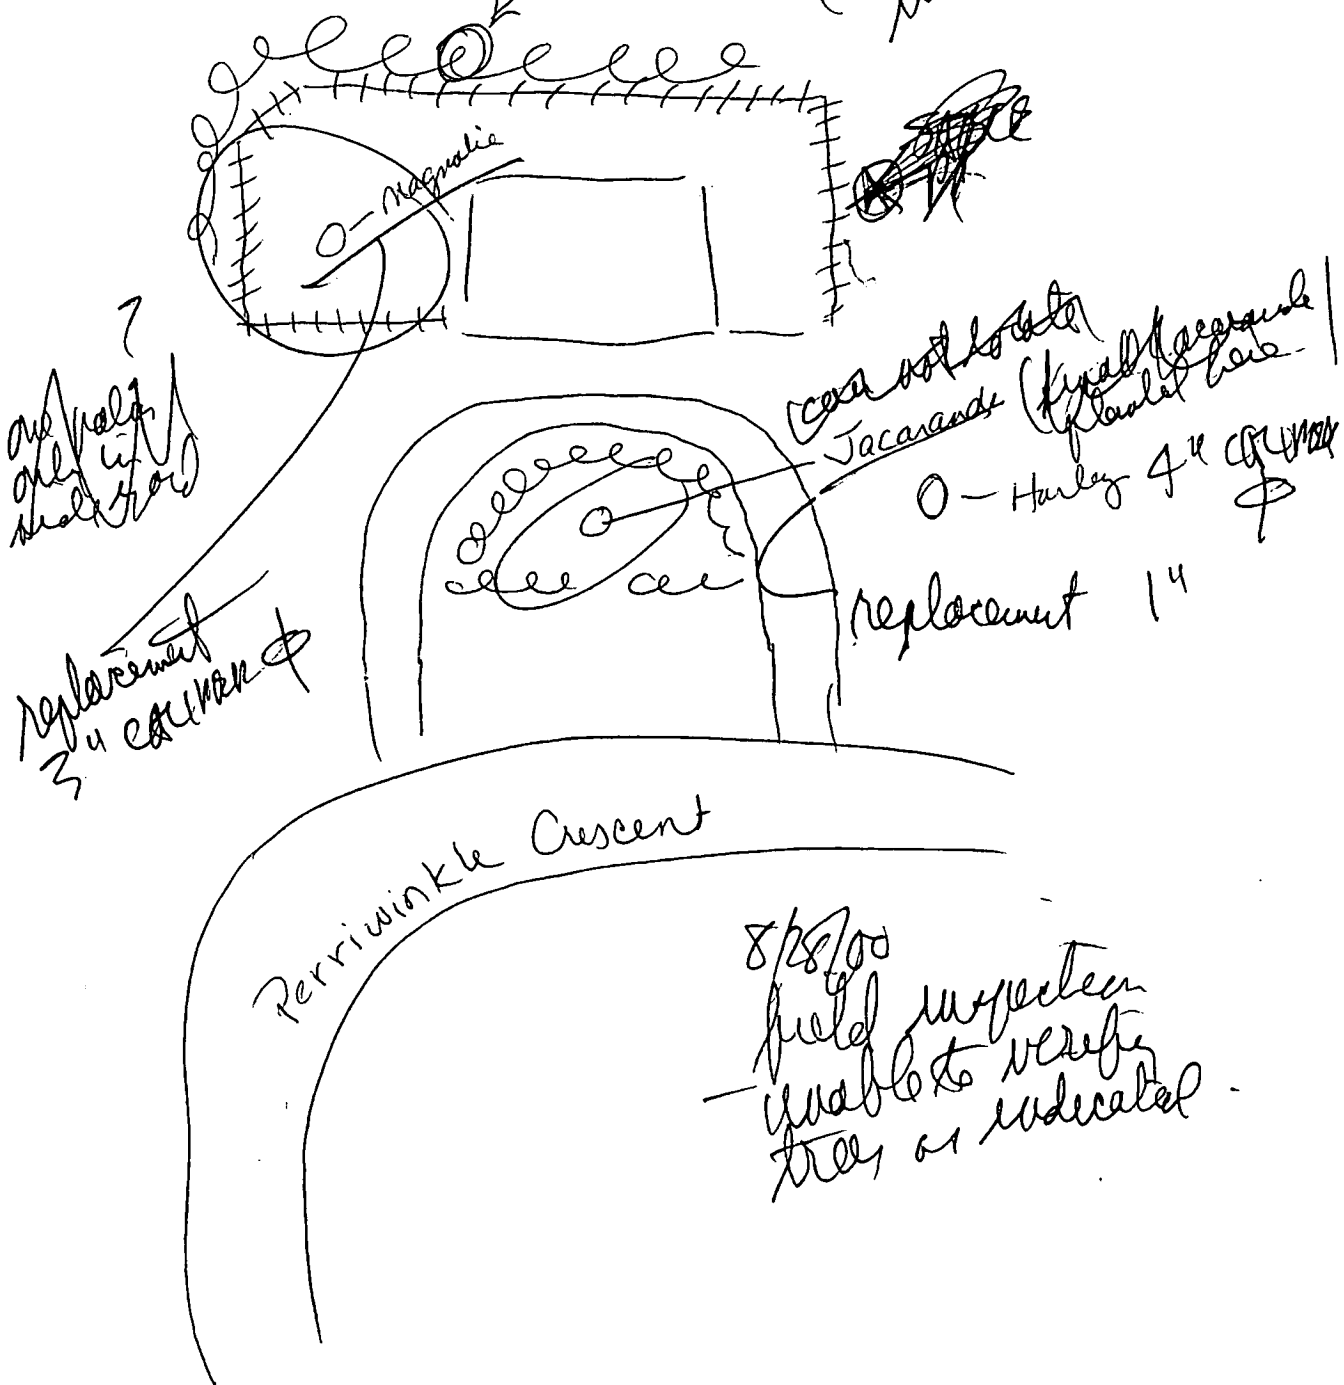 O - Magnolia
?
one palm
only in
side yard
can not locate
Jacaranda (small Jacaranda
planted here
O - Harley 4"
replacement 1"
replacement
3"
Perriwinkle Crescent
8/28/00
field inspection
- unable to verify
trees as indicated.